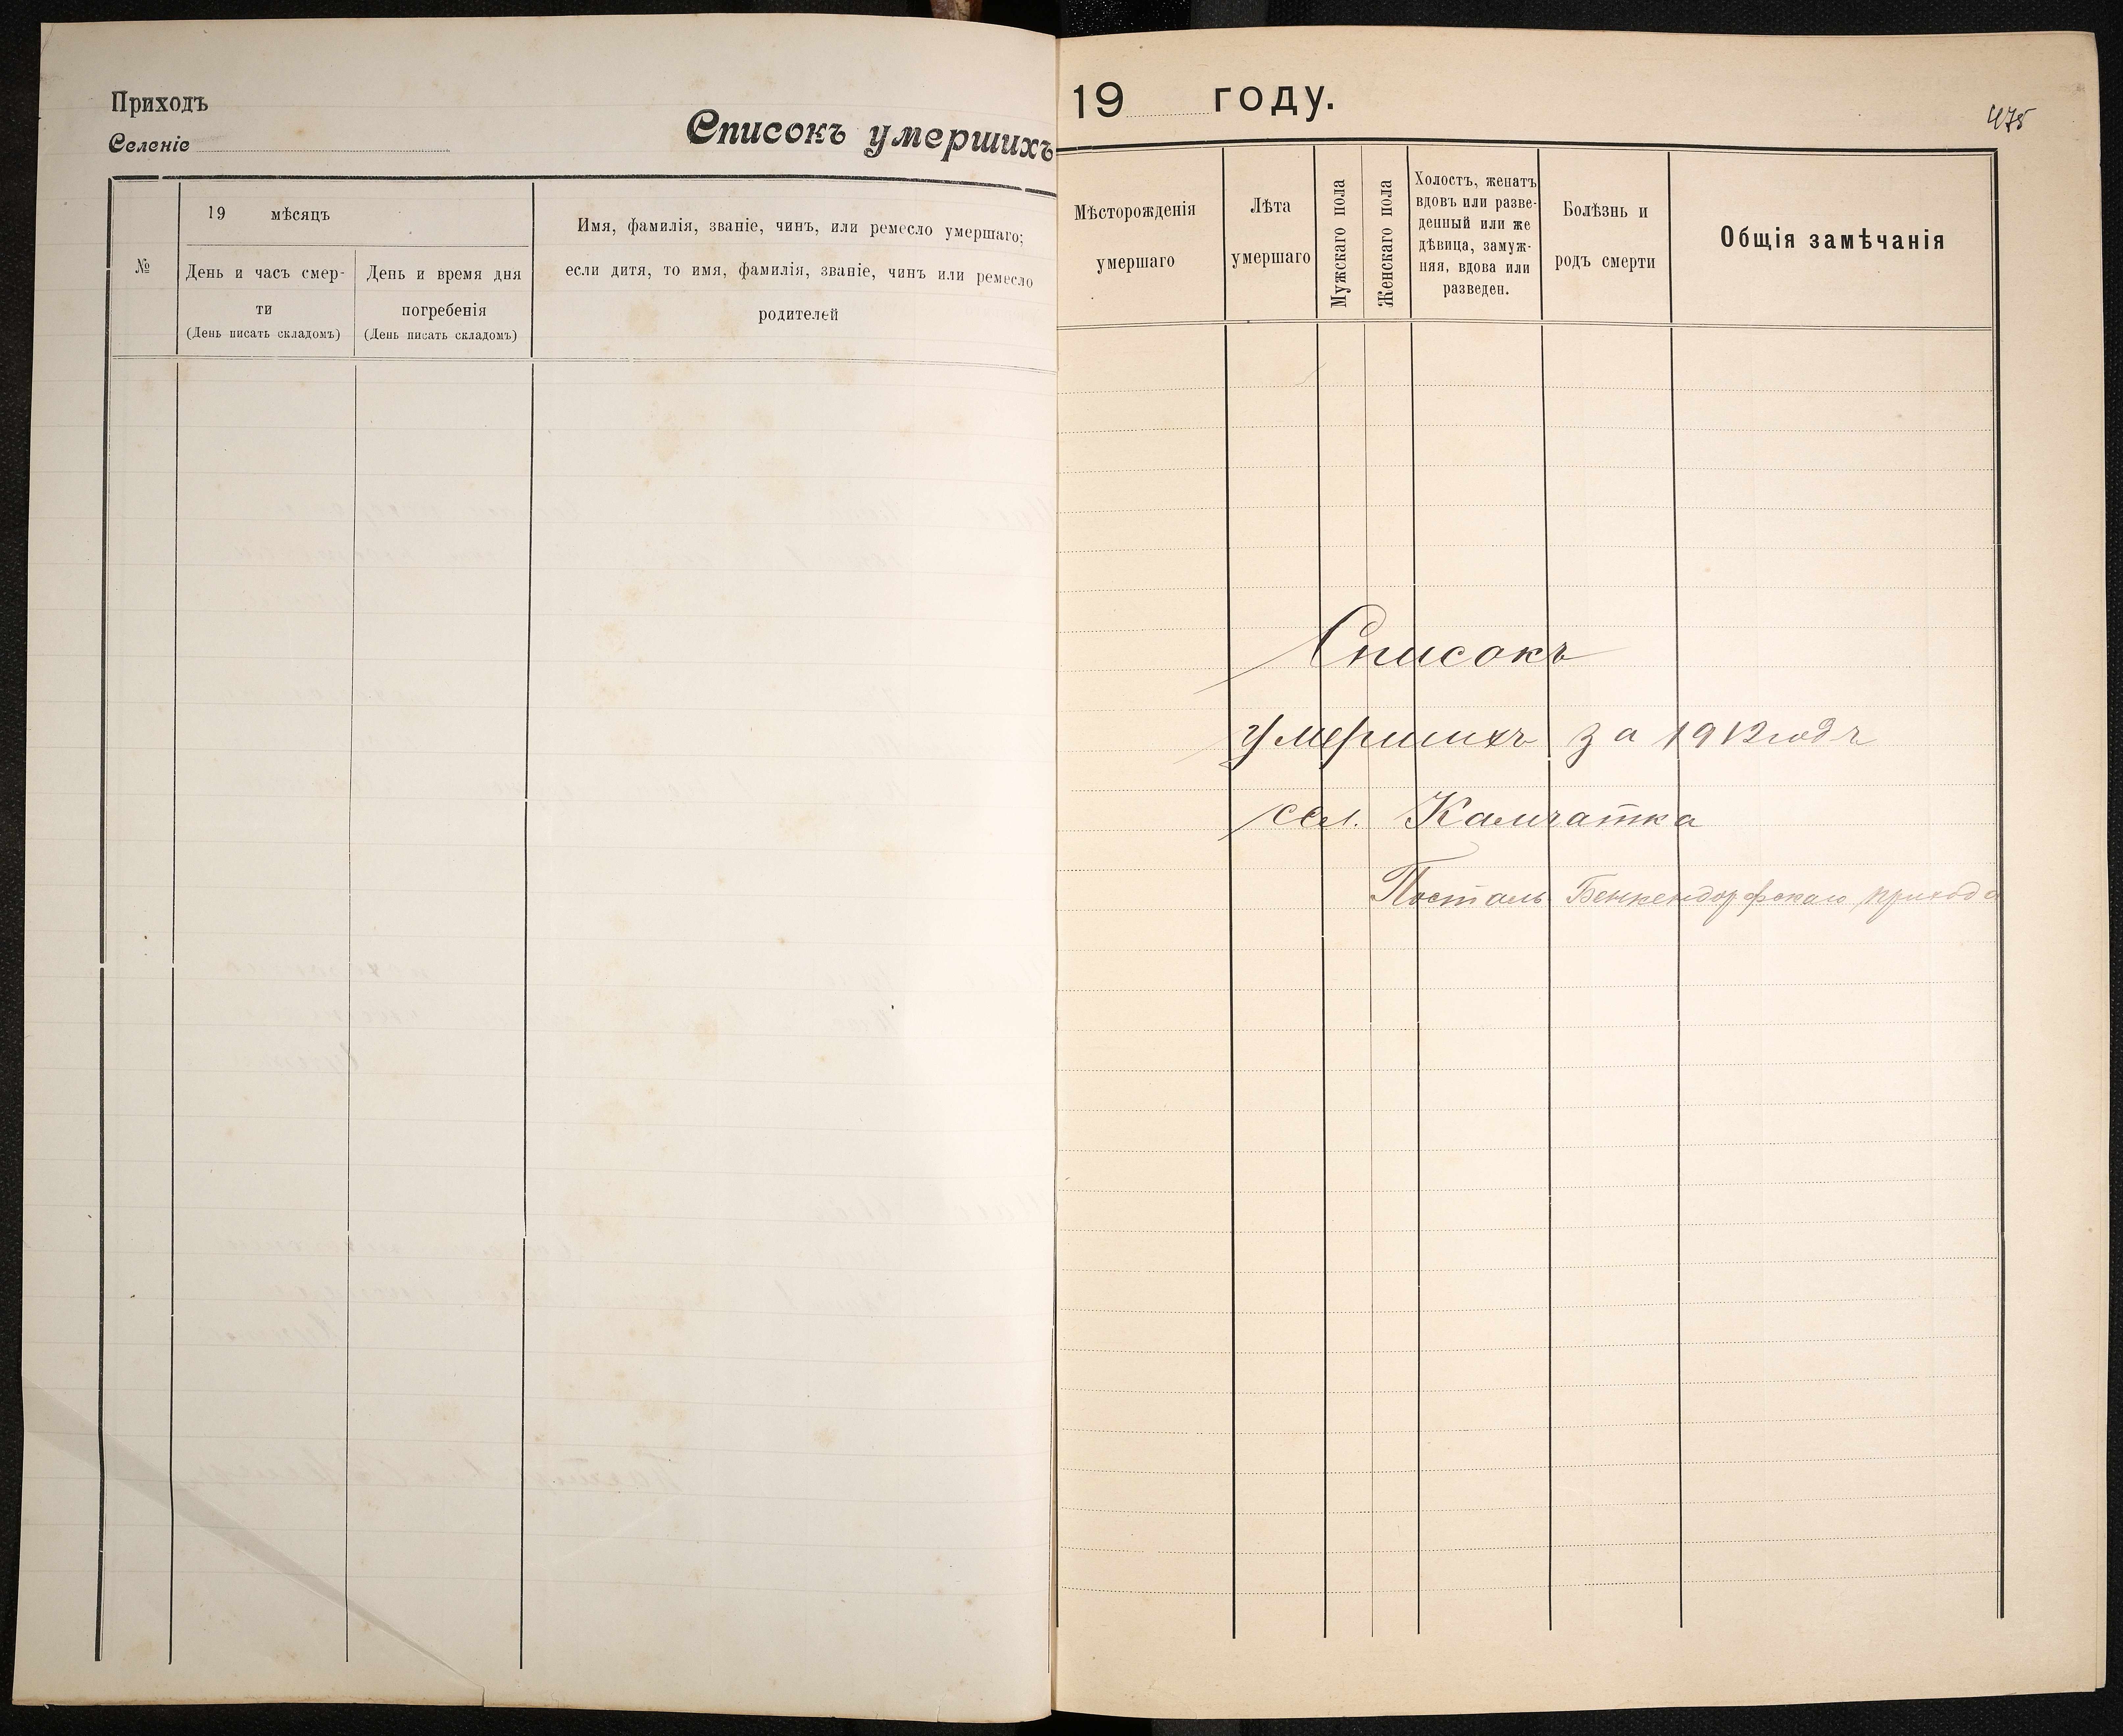 Приходъ
Селеніе
Списокъ умершихъ
№
19 мѣсяцъ
День и часъ смер-
ти
(День писать складомъ)
День и время дня
погребенія
(День писать складомъ)
Имя, фамилія, званіе, чинъ, или ремесло умершаго;
если дитя, то имя, фамилія, званіе, чинъ или ремесло
родителей
19 году.
475
Мѣсторожденія
умершаго
Лѣта
умершаго
Мужскаго пола
Женскаго пола
Холостъ, женатъ
вдовъ или разве-
денный или же
дѣвица, замуж-
няя, вдова или
разведен.
Болѣзнь и
родъ смерти
Общія замѣчанія
Списокъ
умершихъ за 1912 годъ
сел. Камчатка
Посталь Бенкендорфскаго прихода